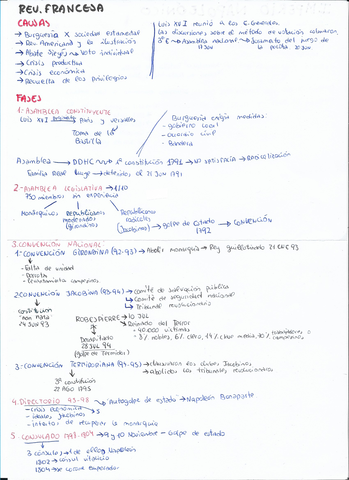 REV. FRANCESA
CAUSAS
→ Burguesía X sociedad estamental
→ Rev Americana y la ilustración
→ Abate Sieyès → Voto individual
→ Crisis productiva
→ Crisis económica
→ Revuelta de los privilegios
Luis XVI reunió a los E. Generales
Las discusiones sobre el método de votación
3º E → Asamblea nacional → Juramento del juego de la pelota, 20 JUN
17 JUN
FASES
1. ASAMBLEA CONSTITUYENTE
Luis XVI París y Versalles
Toma de la Bastilla
Burguesía exigía medidas:
- gobierno local
- Bandera
Asamblea → DDHC 1ª constitución 1791 → no satisfacía → Radicalización
Familia Real huye → detenidos el 21 JUN 1791
2. ASAMBLEA LEGISLATIVA
750 miembros sin experiencia
Monárquicos Republicanos moderados (girondinos) Republicanos radicales (Jacobinos) → golpe de Estado 1792 → CONVENCIÓN
3. CONVENCIÓN NACIONAL:
1º CONVENCIÓN GIRONDINA (92-93) → Abolir monarquía → Rey guillotinado 21 ENE 93
→ Falta de unidad
→ Derrota
→ Levantamientos campesinos
2º CONVENCIÓN JACOBINA (93-94) → comité de salvación pública
→ Comité de seguridad nacional
→ Tribunal revolucionario
constitución
24 JUN 93
ROBESPIERRE → 10 JUL
→ Reinado del Terror
- 40.000 víctimas
- 8% nobles, 6% clero, 14% clase media, 70% trabajadores o campesinos
Decapitado
28 JUL 94
(golpe de Termidor)
3º CONVENCIÓN TERMIDORIANA (94-95) → clausuraron los clubes Jacobinos
→ abolidos los tribunales revolucionarios
3ª constitución
22 AGO 1795
4. DIRECTORIO 95-99 "Autogolpe de estado" → Napoleón Bonaparte
- crisis económica
- ideales jacobinos
- intentos de recuperar la monarquía
5. CONSULADO 1799-1804 → 9 y 10 Noviembre - Golpe de estado
3 cónsules → 1 de ellos Napoleón
1802 → cónsul vitalicio
1804 → se corona emperador